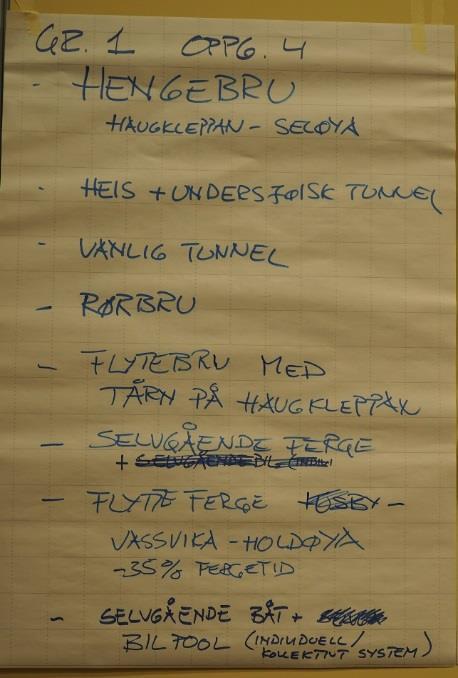 GR. 1 OPPG. 4
- HENGEBRU
HAUGKLEPPAN - SELØYA
- HEIS + UNDERSJØISK TUNNEL
- VANLIG TUNNEL
- RØRBRU
- FLYTEBRU MED
TÅRN PÅ HAUGKLEPPAN
- SELVGÅENDE FERGE
+ SELVGÅENDE BIL
- FLYTTE FERGE -
VASSVIKA - HOLDØYA
-35% FERGETID
- SELVGÅENDE BÅT +
BILPOOL (INDIVIDUELL/
KOLLEKTIVT SYSTEM)